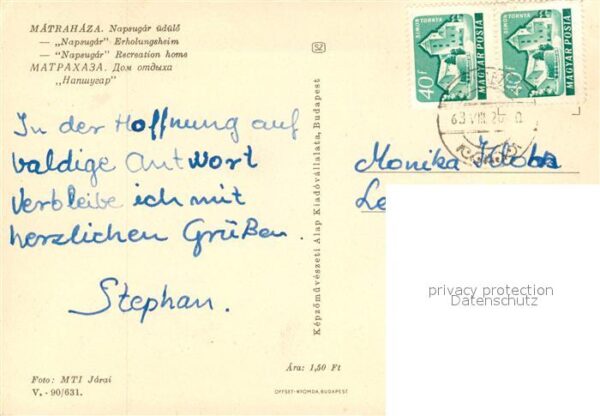 MÁTRAHÁZA. Napsugár üdülő
— „Napsugár" Erholungsheim
— “Napsugár” Recreation home
МАТРАХАЗА. Дом отдыха
„Напшугар"
In der Hoffnung auf
baldige Antwort
verbleibe ich mit
herzlichen Grüßen.
Stephan.
Foto: MTI Járai
V. - 90/631.
SZ
Képzőművészeti Alap Kiadóvállalata, Budapest
Ára: 1,50 Ft
OFFSET-NYOMDA, BUDAPEST
SIMON TORNYA
40 f
MAGYAR POSTA
SIMON TORNYA
40 f
MAGYAR POSTA
63 VIII
Monika
Le
privacy protection
Datenschutz